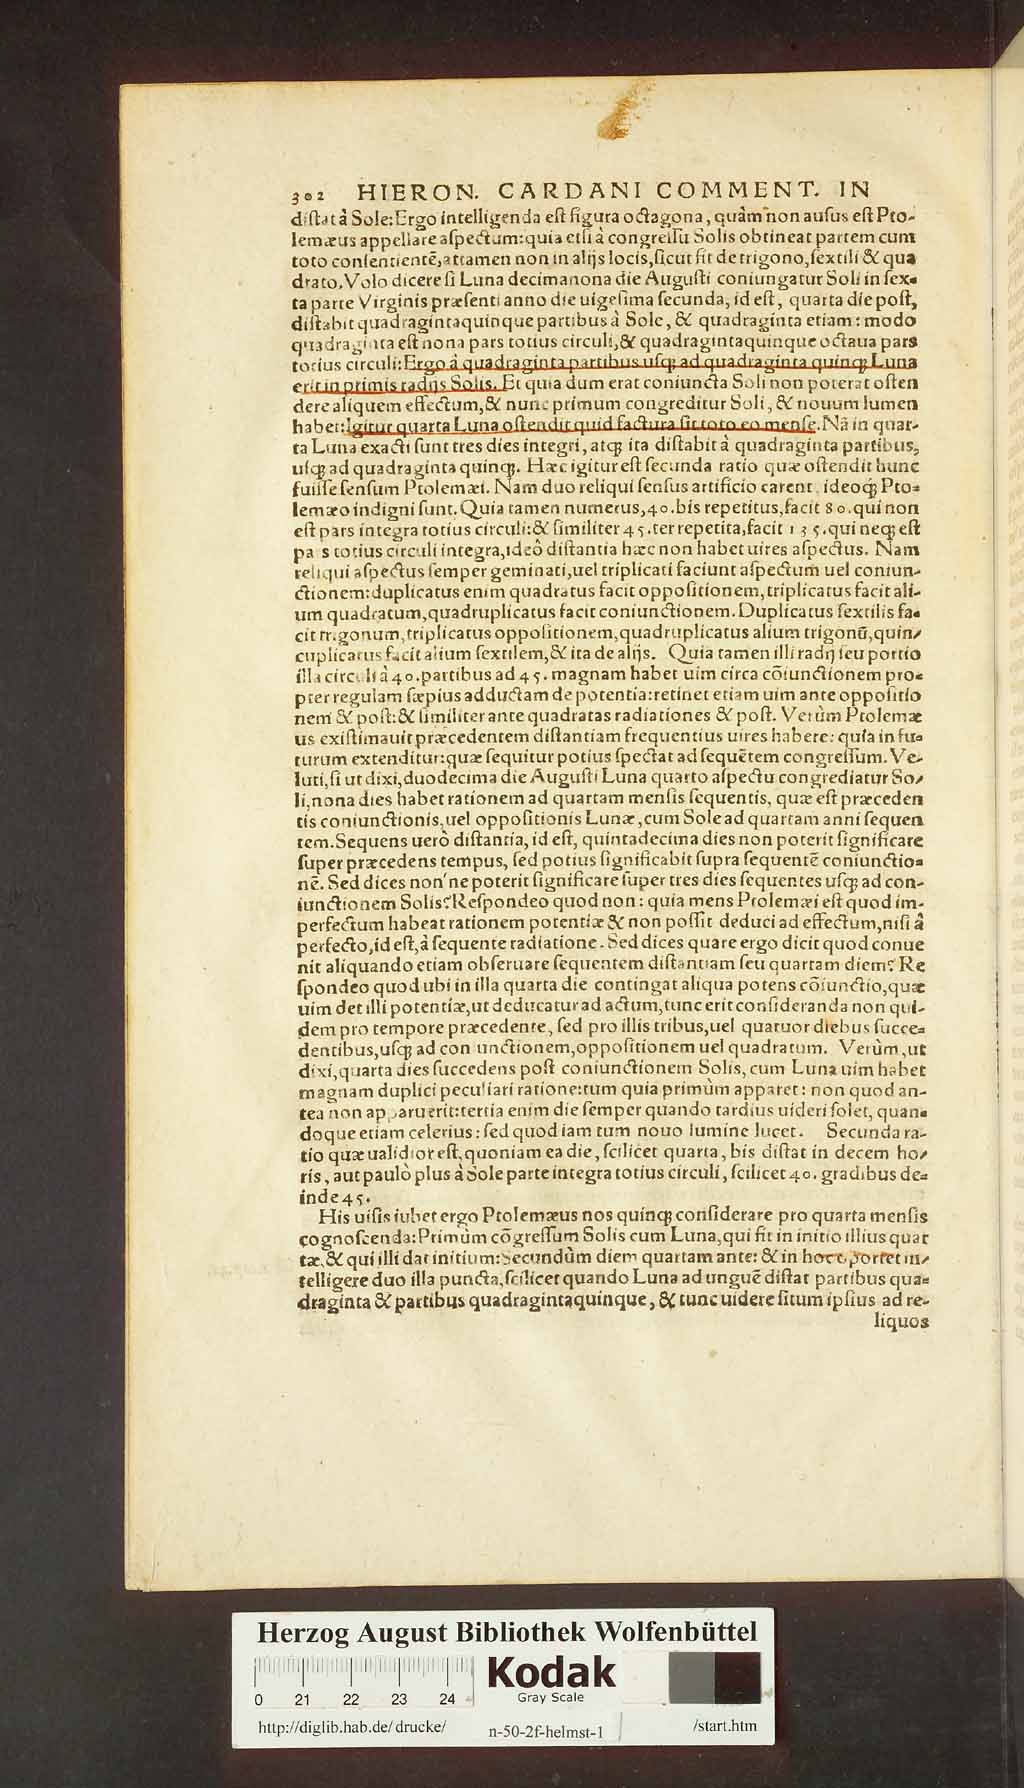 302 HIERON. CARDANI COMMENT. IN
distat à Sole: Ergo intelligenda est figura octagona, quàm non ausus est Pto-
lemæus appellare aspectum: quia etsi à congressu Solis obtineat partem cum
toto consentientẽ, attamen non in alijs locis, sicut fit de trigono, sextili & qua
drato. Volo dicere si Luna decimanona die Augusti coniungatur Soli in sex-
ta parte Virginis præsenti anno die uigesima secunda, id est, quarta die post,
distabit quadragintaquinque partibus à Sole, & quadraginta etiam: modo
quadraginta est nona pars totius circuli, & quadragintaquinque octaua pars
totius circuli: Ergo â quadraginta partibus usq; ad quadraginta quinq; Luna
erit in primis radijs Solis. Et quia dum erat coniuncta Soli non poterat osten
dere aliquem effectum, & nunc primum congreditur Soli, & nouum lumen
habet: Igitur quarta Luna ostendit quid factura sit toto eo mense. Nã in quar-
ta Luna exacti sunt tres dies integri, atq; ita distabit à quadraginta partibus,
usq; ad quadraginta quinq;. Hæc igitur est secunda ratio quæ ostendit hunc
fuisse sensum Ptolemæi. Nam duo reliqui sensus artificio carent, ideoq; Pto-
lemæo indigni sunt. Quia tamen numerus, 40. bis repetitus, facit 80. qui non
est pars integra totius circuli: & similiter 45. ter repetita, facit 135. qui neq; est
pa s totius circuli integra, ideô distantia hæc non habet uires aspectus. Nam
reliqui aspectus semper geminati, uel triplicati faciunt aspectum uel coniun-
ctionem: duplicatus enim quadratus facit oppositionem, triplicatus facit ali-
um quadratum, quadruplicatus facit coniunctionem. Duplicatus sextilis fa-
cit trigonum, triplicatus oppositionem, quadruplicatus alium trigonũ, quin-
cuplicatus facit alium sextilem, & ita de alijs. Quia tamen illi radij seu portio
illa circuli à 40. partibus ad 45. magnam habet uim circa cõiunctionem pro-
pter regulam sæpius adductam de potentia: retinet etiam uim ante oppositio
nem & post: & similiter ante quadratas radiationes & post. Verùm Ptolemæ
us existimauit præcedentem distantiam frequentius uires habere: quia in fu-
turum extenditur: quæ sequitur potius spectat ad sequẽtem congressum. Ve-
luti, si ut dixi, duodecima die Augusti Luna quarto aspectu congrediatur So-
li, nona dies habet rationem ad quartam mensis sequentis, quæ est præceden
tis coniunctionis, uel oppositionis Lunæ, cum Sole ad quartam anni sequen
tem. Sequens uerò distantia, id est, quintadecima dies non poterit significare
super præcedens tempus, sed potius significabit supra sequentẽ coniunctio-
nẽ. Sed dices non'ne poterit significare super tres dies sequentes usq; ad con-
iunctionem Solis? Respondeo quod non: quia mens Ptolemæi est quod im-
perfectum habeat rationem potentiæ & non possit deduci ad effectum, nisi â
perfecto, id est, à sequente radiatione. Sed dices quare ergo dicit quod conue
nit aliquando etiam obseruare sequentem distantiam seu quartam diem? Re
spondeo quod ubi in illa quarta die contingat aliqua potens cõiunctio, quæ
uim det illi potentiæ, ut deducatur ad actum, tunc erit consideranda non qui-
dem pro tempore præcedente, sed pro illis tribus, uel quatuor diebus succe-
dentibus, usq; ad con unctionem, oppositionem uel quadratum. Verùm, ut
dixi, quarta dies succedens post coniunctionem Solis, cum Luna uim habet
magnam duplici peculiari ratione: tum quia primùm apparet: non quod an-
tea non apparuerit: tertia enim die semper quando tardius uideri solet, quan-
doque etiam celerius: sed quod iam tum nouo lumine lucet. Secunda ra-
tio quæ ualidior est, quoniam ea die, scilicet quarta, bis distat in decem ho-
ris, aut paulò plus à Sole parte integra totius circuli, scilicet 40. gradibus de-
inde 45.
His uisis iubet ergo Ptolemæus nos quinq; considerare pro quarta mensis
cognoscenda: Primùm cõgressum Solis cum Luna, qui fit in initio illius quar
tæ, & qui illi dat initium: Secundùm diem quartam ante: & in hoc oportet in-
telligere duo illa puncta, scilicet quando Luna ad unguẽ distat partibus qua-
draginta & partibus quadragintaquinque, & tunc uidere situm ipsius ad re-
liquos
Herzog August Bibliothek Wolfenbüttel
Kodak
Gray Scale
0 21 22 23 24
http://diglib.hab.de/drucke/ n-50-2f-helmst-1 /start.htm